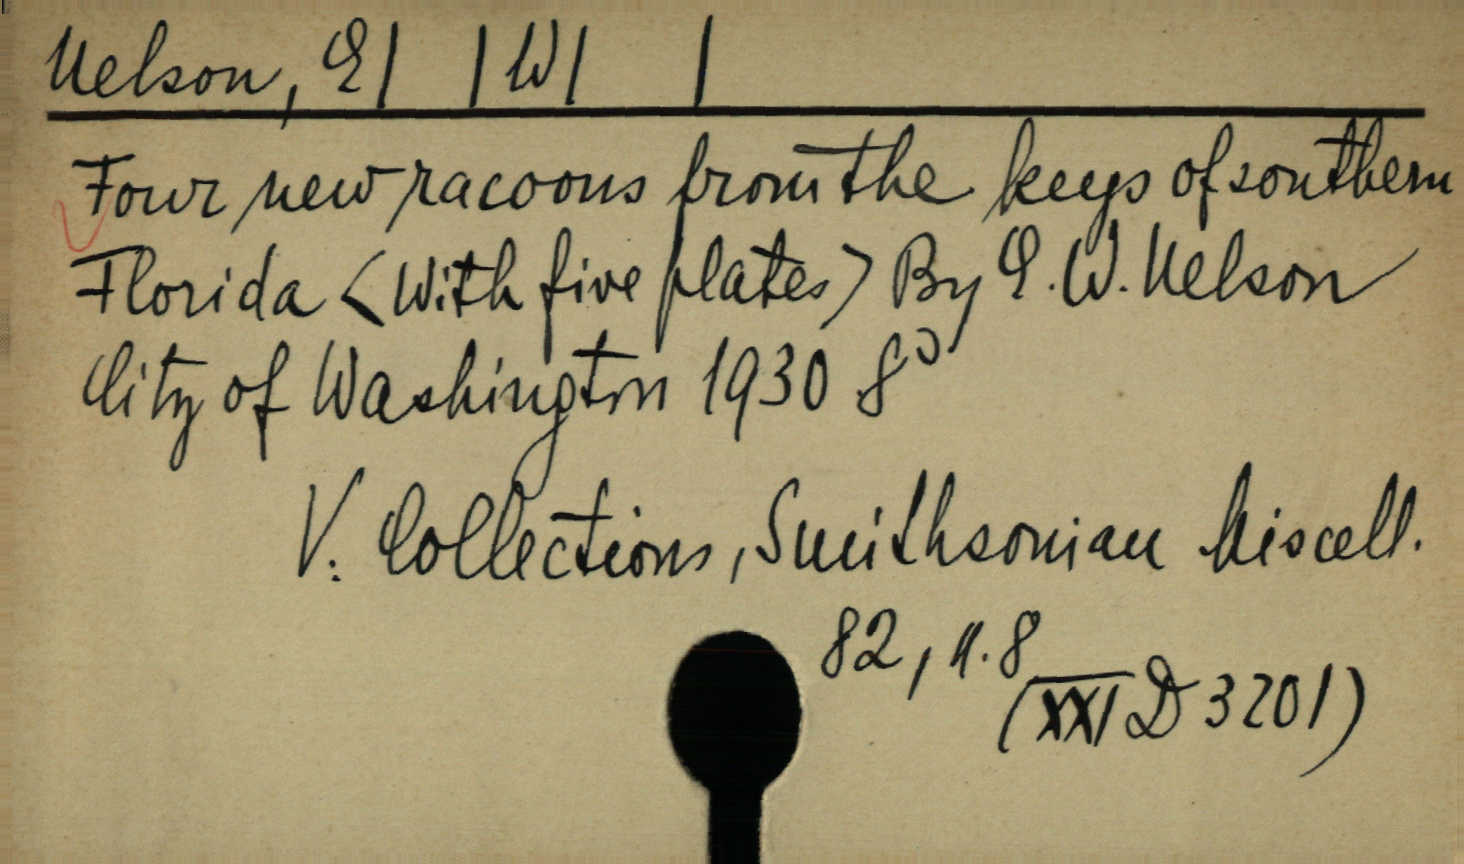 Nelson, E| |W| |
Four new racoons from the keys of southern
Florida <With five plates> By E. W. Nelson
City of Washington 1930 8°
V. Collections, Smithsonian Miscell.
82, n. 8
(XXI D 3201)